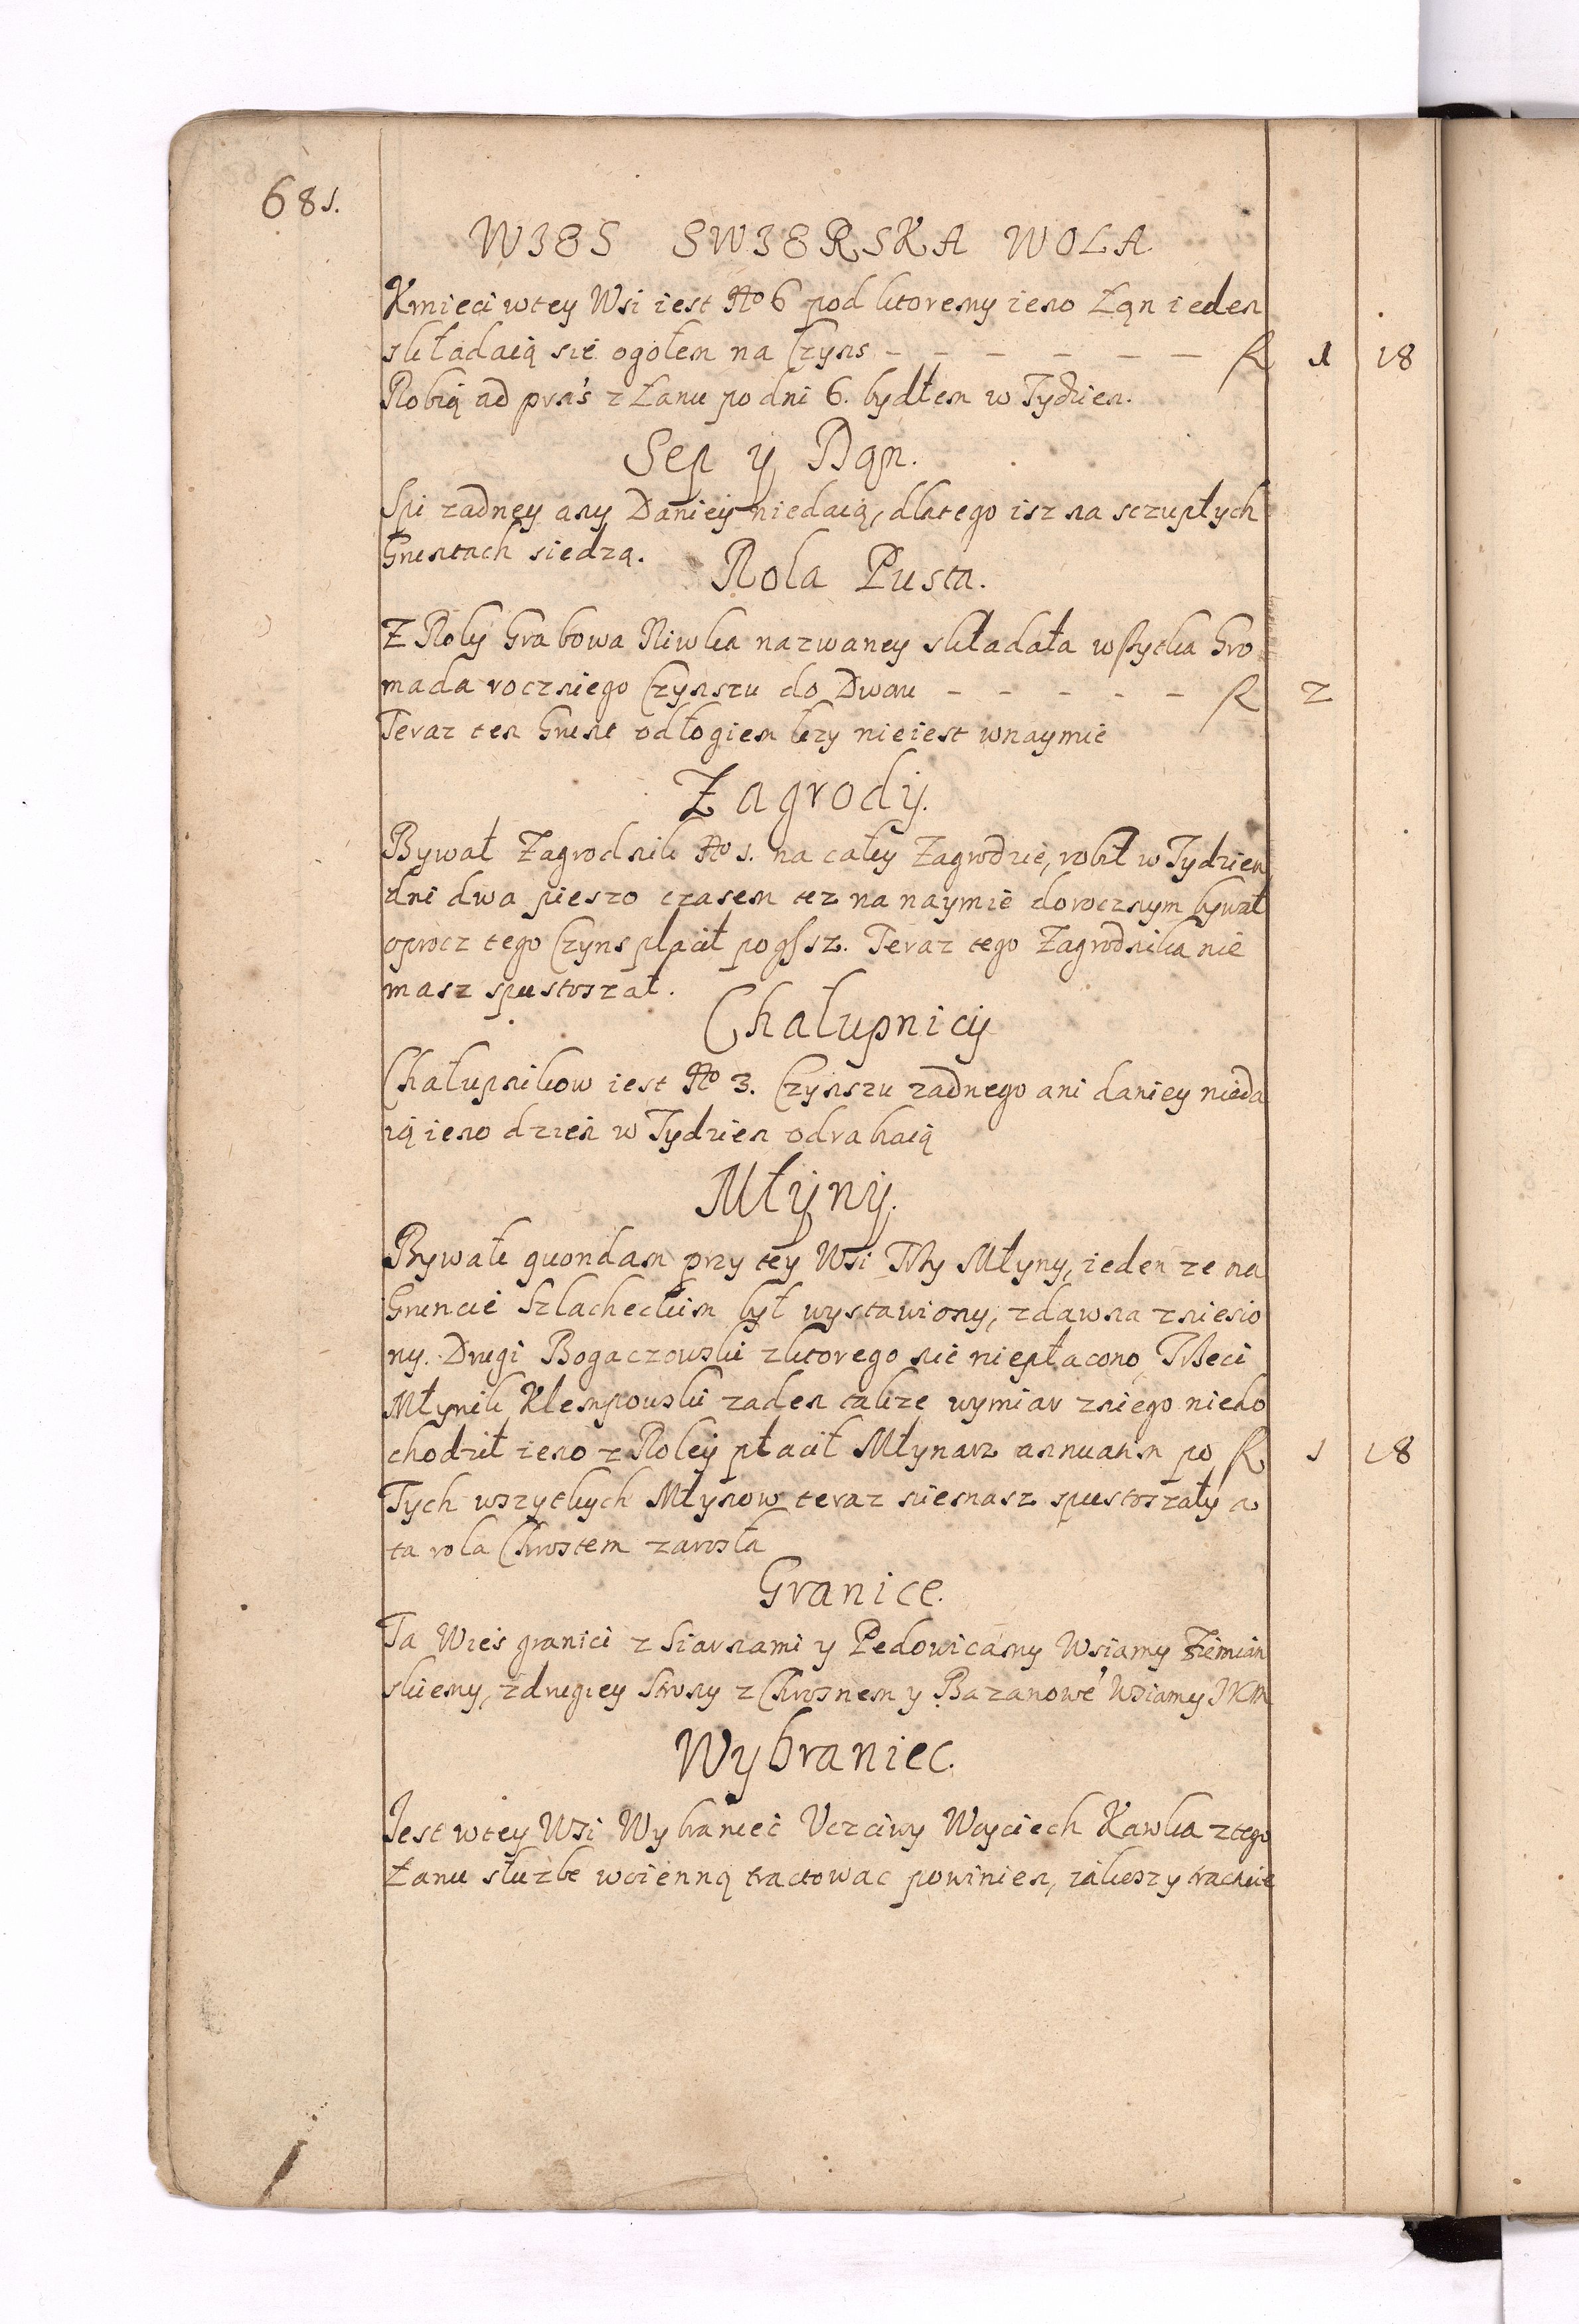 681.
WIES SWIERSKA WOLA
Kmieci wtey Wsi iest No 6 pod ktoremy ieno Łąn ieden
składaią sie ogołem na Czyns — — — — — — fl 1 18
Robią ad prns z Łanu po dni 6. bydłem w Tydzien.
Sep y Dan.
Spi zadney any Daniey niedaią, dlatego isz na sczupłych
Gruntach siedzą.
Rola Pusta.
Z Roly Grabowa Niwka nazwaney składała wszytka Gro
mada roczniego Czynszu do Dwou - - - - - fl 2
Teraz ten Grunt odłogiem lezy nieiest wnaymie
Zagrody.
Bywał Zagrodnik No 1. na całey Zagrodzie, robił w Tydzien
dni dwa pieszo czasem tez na naymie dorocznym bywał
oprocz tego Czyns płacił po gr 12. Teraz tego Zagrodnika nie
masz spustoszał.
Chałupnicy
Chałupnikow iest No 3. Czynszu zadnego ani daniey nieda
ią ieno dzień w Tydzien odrabaią
Młyny.
Bywałi quondam przy tey Wsi Trzy Młyny, ieden ze na
Gruncie Szlacheckim był wystawiony, zdawna zniesio
ny. Drugi Bogaczowski zktorego nie niepłacono Trzeci
Młynik Klempowski zaden takze wymiar zniego niedo
chodził ieno z Roley płacił Młynarz annuatim po fl 1 18
Tych wszytkych Młynow teraz niemasz spustoszały a
ta rola Chrostem zarosła
Granice.
Ta Wieś granici z Siarnami y Pedowicamy Wsiamy Ziemian
skiemy, zdrugiey Strony z Chrosnem y Bazanowe Wsiamy JKM
Wybraniec.
Jest wtey Wsi Wybraniec Uczciwy Woyciech Kawka ztego
Łanu służbe woienną tractowac powinien,